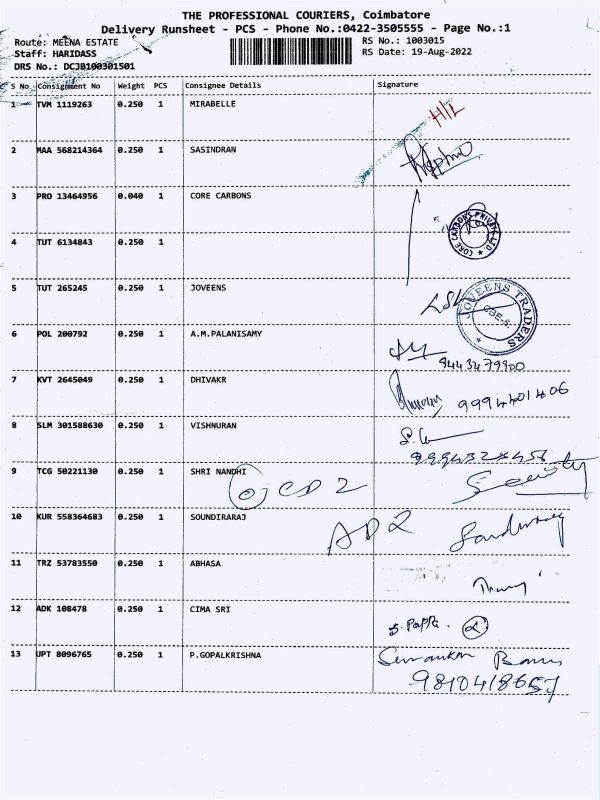 THE PROFESSIONAL COURIERS, Coimbatore
Delivery Runsheet - PCS - Phone No.:0422-3505555 - Page No.:1
Route: MEENA ESTATE RS No.: 1003015
Staff: HARIDASS RS Date: 19-Aug-2022
DRS No.: DCJB100301501
S No Consignment No Weight PCS Consignee Details Signature
1 TVM 1119263 0.250 1 MIRABELLE H/L
2 MAA 568214364 0.250 1 SASINDRAN
3 PRO 13464956 0.040 1 CORE CARBONS
CORE CARBONS PRIVATE LTD
4 TUT 6134843 0.250 1
5 TUT 265245 0.250 1 JOVEENS
JOVEENS TRADERS
CBE-5.
6 POL 200792 0.250 1 A.M.PALANISAMY
9443479900
7 KVT 2645049 0.250 1 DHIVAKR
8 SLM 301588630 0.250 1 VISHNURAN
9 TCG 50221130 0.250 1 SHRI NANDHI
10 KUR 558364683 0.250 1 SOUNDIRARAJ
11 TRZ 53783550 0.250 1 ABHASA
12 ADK 108478 0.250 1 CIMA SRI
13 UPT 8096765 0.250 1 P.GOPALKRISHNA
9810418657